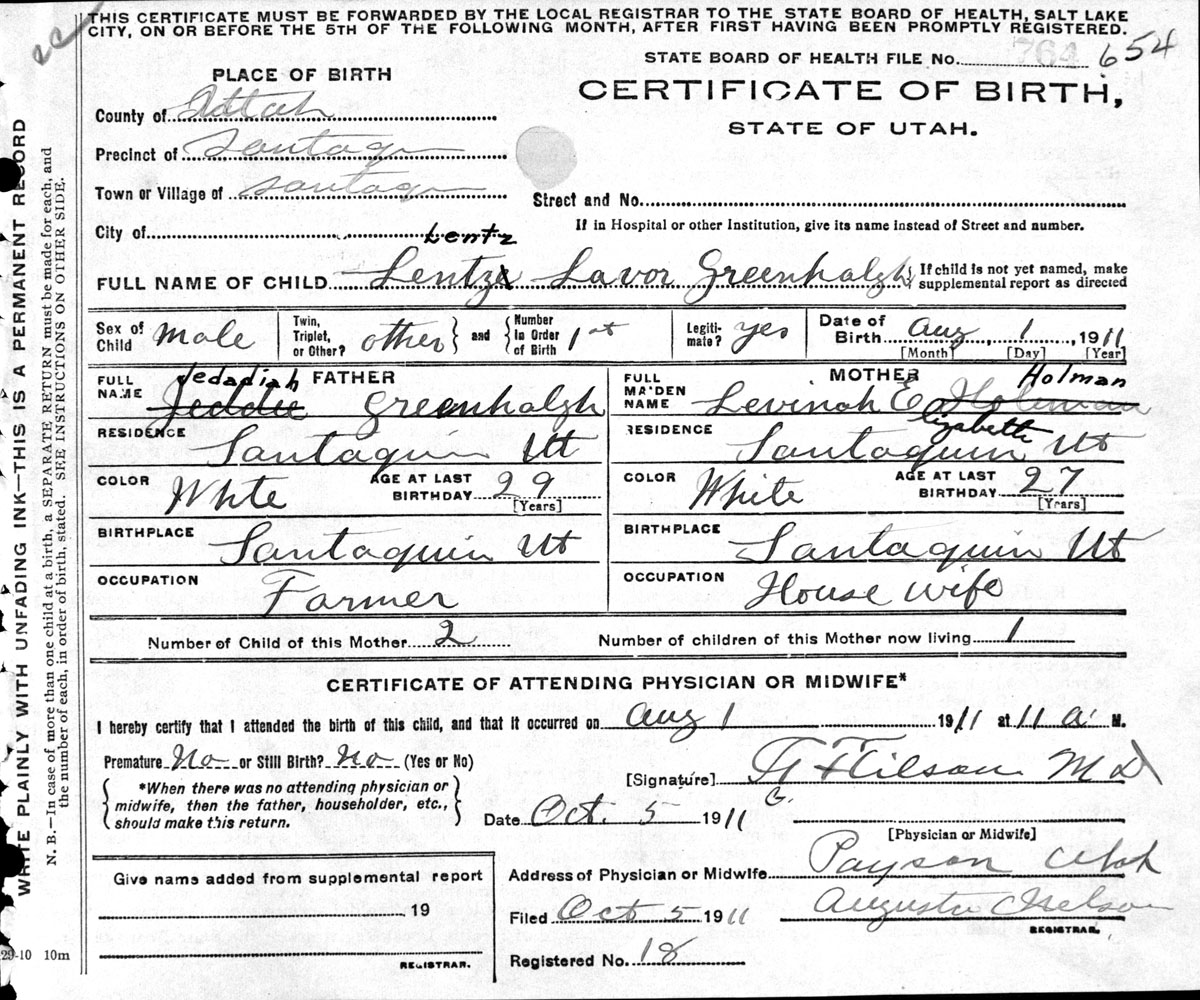 THIS CERTIFICATE MUST BE FORWARDED BY THE LOCAL REGISTRAR TO THE STATE BOARD OF HEALTH, SALT LAKE
CITY, ON OR BEFORE THE 5TH OF THE FOLLOWING MONTH, AFTER FIRST HAVING BEEN PROMPTLY REGISTERED.
STATE BOARD OF HEALTH FILE NO. 764 654
PLACE OF BIRTH
CERTIFICATE OF BIRTH,
STATE OF UTAH.
County of Uttah
Precinct of Santaqu
Town or Village of Santaqu
Street and No.
City of
If in Hospital or other Institution, give its name instead of Street and number.
Lentz
FULL NAME OF CHILD Lentz Lavor Greenhalgh { If child is not yet named, make
supplemental report as directed
Sex of Child male
Twin, Triplet, or Other? other } and { Number in Order of Birth 1st
Legitimate? yes
Date of Birth Aug 1 1911
[Month] [Day] [Year]
FATHER
FULL NAME Jedadiah Jeddie Greenhalgh
RESIDENCE Santaquin Ut
COLOR Whte AGE AT LAST BIRTHDAY 29
[Years]
BIRTHPLACE Santaquin Ut
OCCUPATION Farmer
MOTHER
FULL MAIDEN NAME Levinah E Holman Holman
Elizabeth
RESIDENCE Santaquin Ut
COLOR White AGE AT LAST BIRTHDAY 27
[Years]
BIRTHPLACE Santaquin Ut
OCCUPATION House wife
Number of Child of this Mother 2 Number of children of this Mother now living 1
CERTIFICATE OF ATTENDING PHYSICIAN OR MIDWIFE*
I hereby certify that I attended the birth of this child, and that it occurred on Aug 1 1911 at 11 a. M.
Premature No or Still Birth? No (Yes or No)
{ *When there was no attending physician or
midwife, then the father, householder, etc.,
should make this return. }
[Signature] MD
Date Oct. 5 1911
[Physician or Midwife]
Address of Physician or Midwife Payson Utah
Filed Oct 5 1911 Augusta Nelson
REGISTRAR.
Registered No. 18
Give name added from supplemental report
19
REGISTRAR.
29-10 10m
WRITE PLAINLY WITH UNFADING INK—THIS IS A PERMANENT RECORD
N. B.—In case of more than one child at a birth, a SEPARATE RETURN must be made for each, and
the number of each, in order of birth, stated. SEE INSTRUCTIONS ON OTHER SIDE.